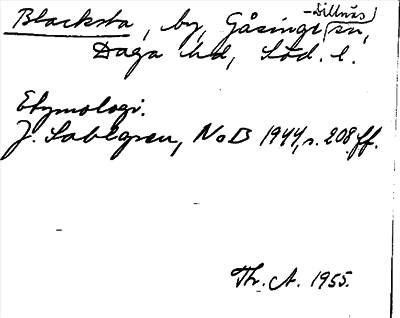 Blacksta, by, Gåsinge-Dillnäs sn,
Daga hd, Söd. l.
Etymologi.
J. Sahlgren, NoB 1944, s. 208 ff.
Th. A. 1955.